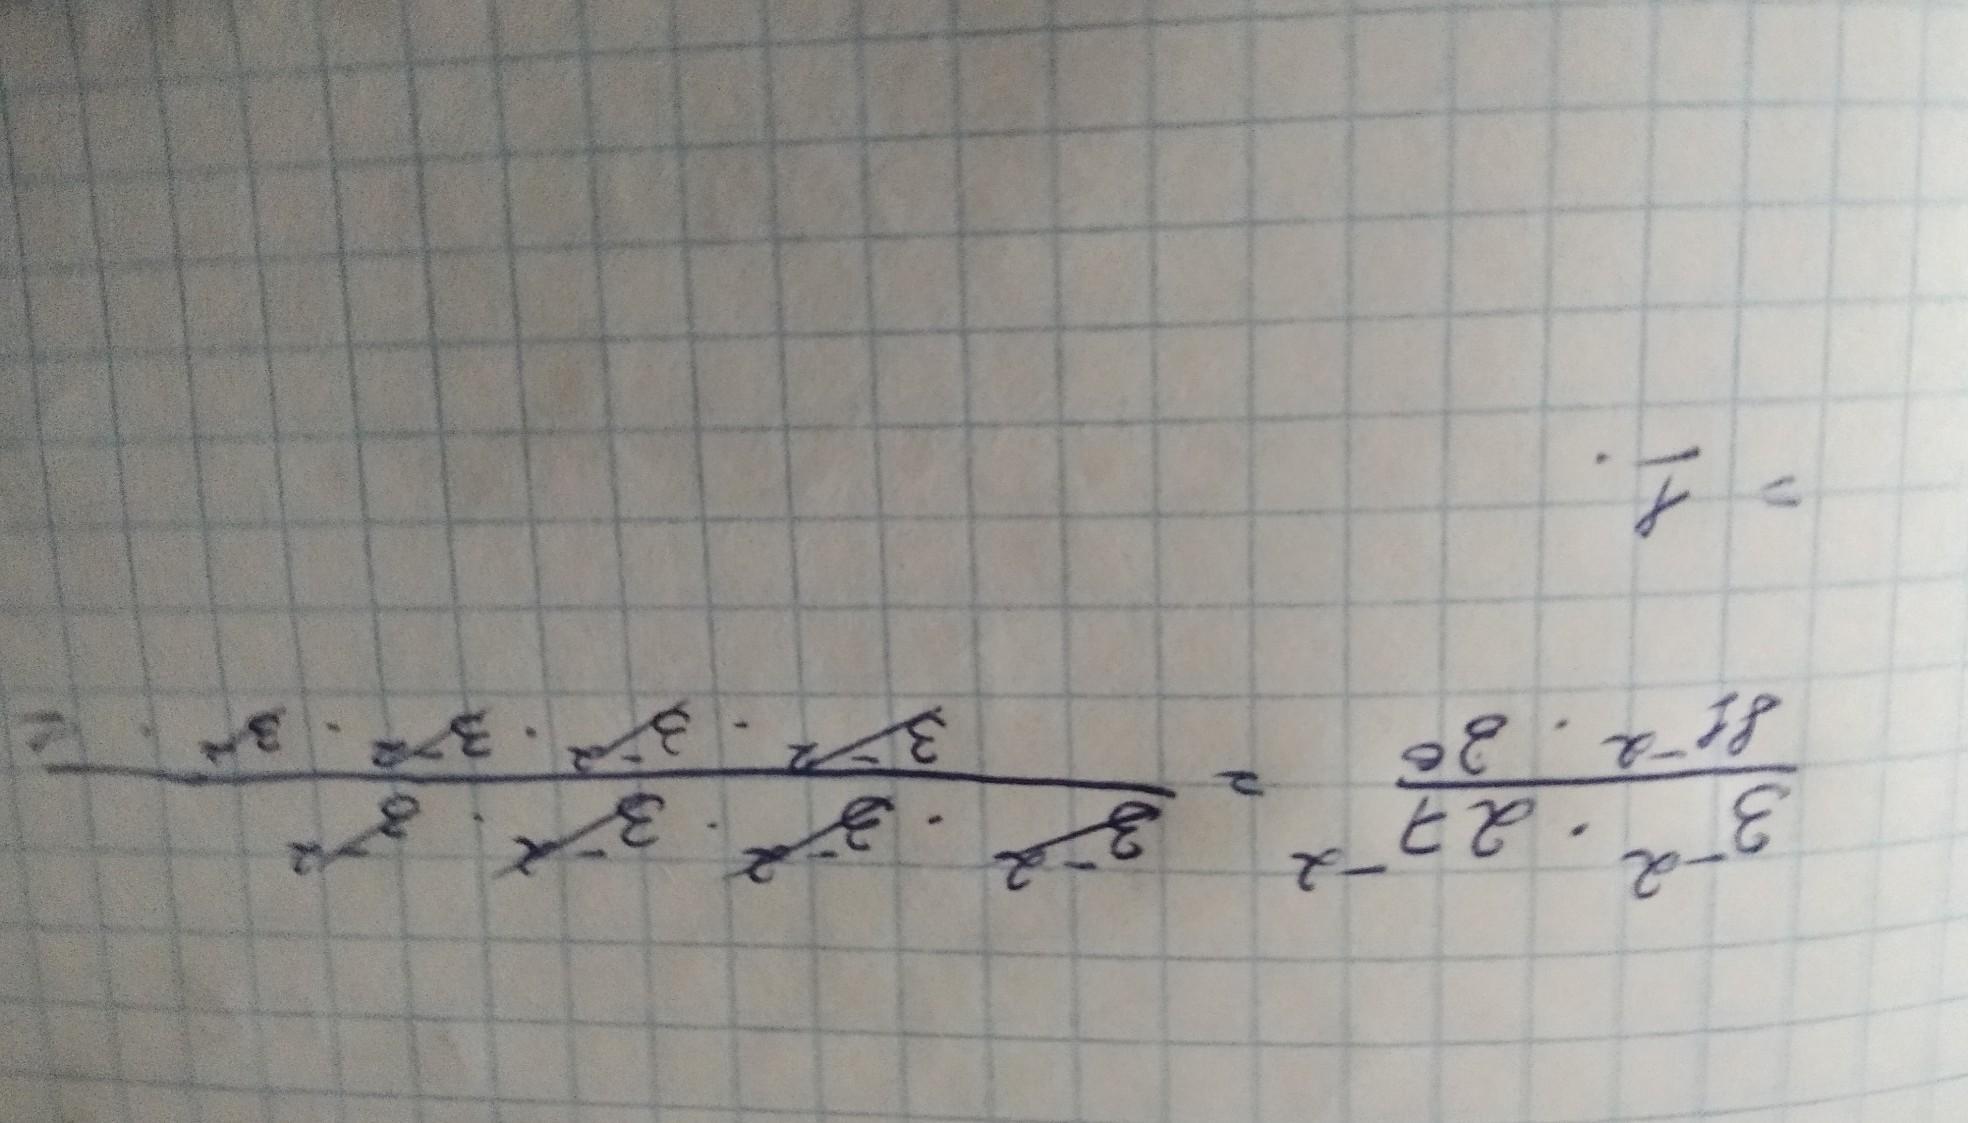 3⁻² · 27⁻² / 81⁻² · 3⁰ = 3⁻² · 3⁻² · 3⁻² · 3⁻² / 3⁻² · 3⁻² · 3⁻² · 3⁻² · =
= 1/1 .